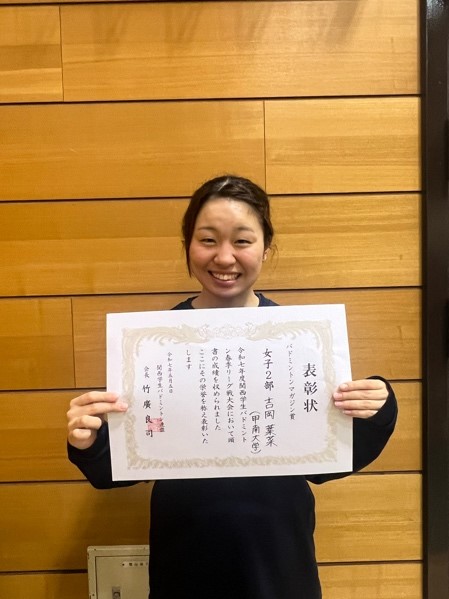 表彰状
バドミントンマガジン賞
女子2部 吉岡 葉菜
(甲南大学)
令和七年度関西学生バドミント
ン春季リーグ戦大会において頭
書の成績を収められました
ここにその栄誉を称え表彰いた
します
令和七年五月五日
関西学生バドミントン連盟
会長 竹廣良司